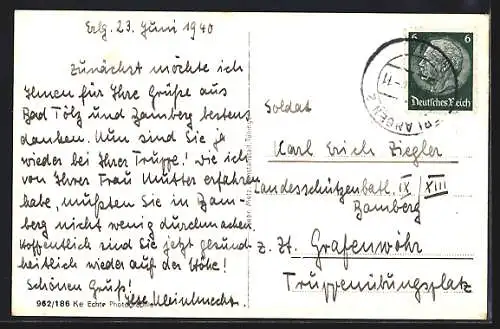 Erlg. 23. Juni 1940
Zunächst möchte ich
Ihnen für Ihre Grüße aus
Bad Tölz und Bamberg bestens
danken. Nun sind Sie ja
wieder bei Ihrer Truppe! Wie ich
von Ihrer Frau Mutter erfahren
habe, mußten Sie in Bam-
berg nicht wenig durchmachen.
Hoffentlich sind Sie jetzt gesund-
heitlich wieder auf der Höhe!
Schönen Gruß!
Ilse
962/186 Ke Echte Photographie
6 6
Deutsches Reich
ERLANGEN 2
Soldat
Karl Erich Ziegler
Landesschützenbatl. IX/XIII
Bamberg
z. Zt. Grafenwöhr
Truppenübungsplatz